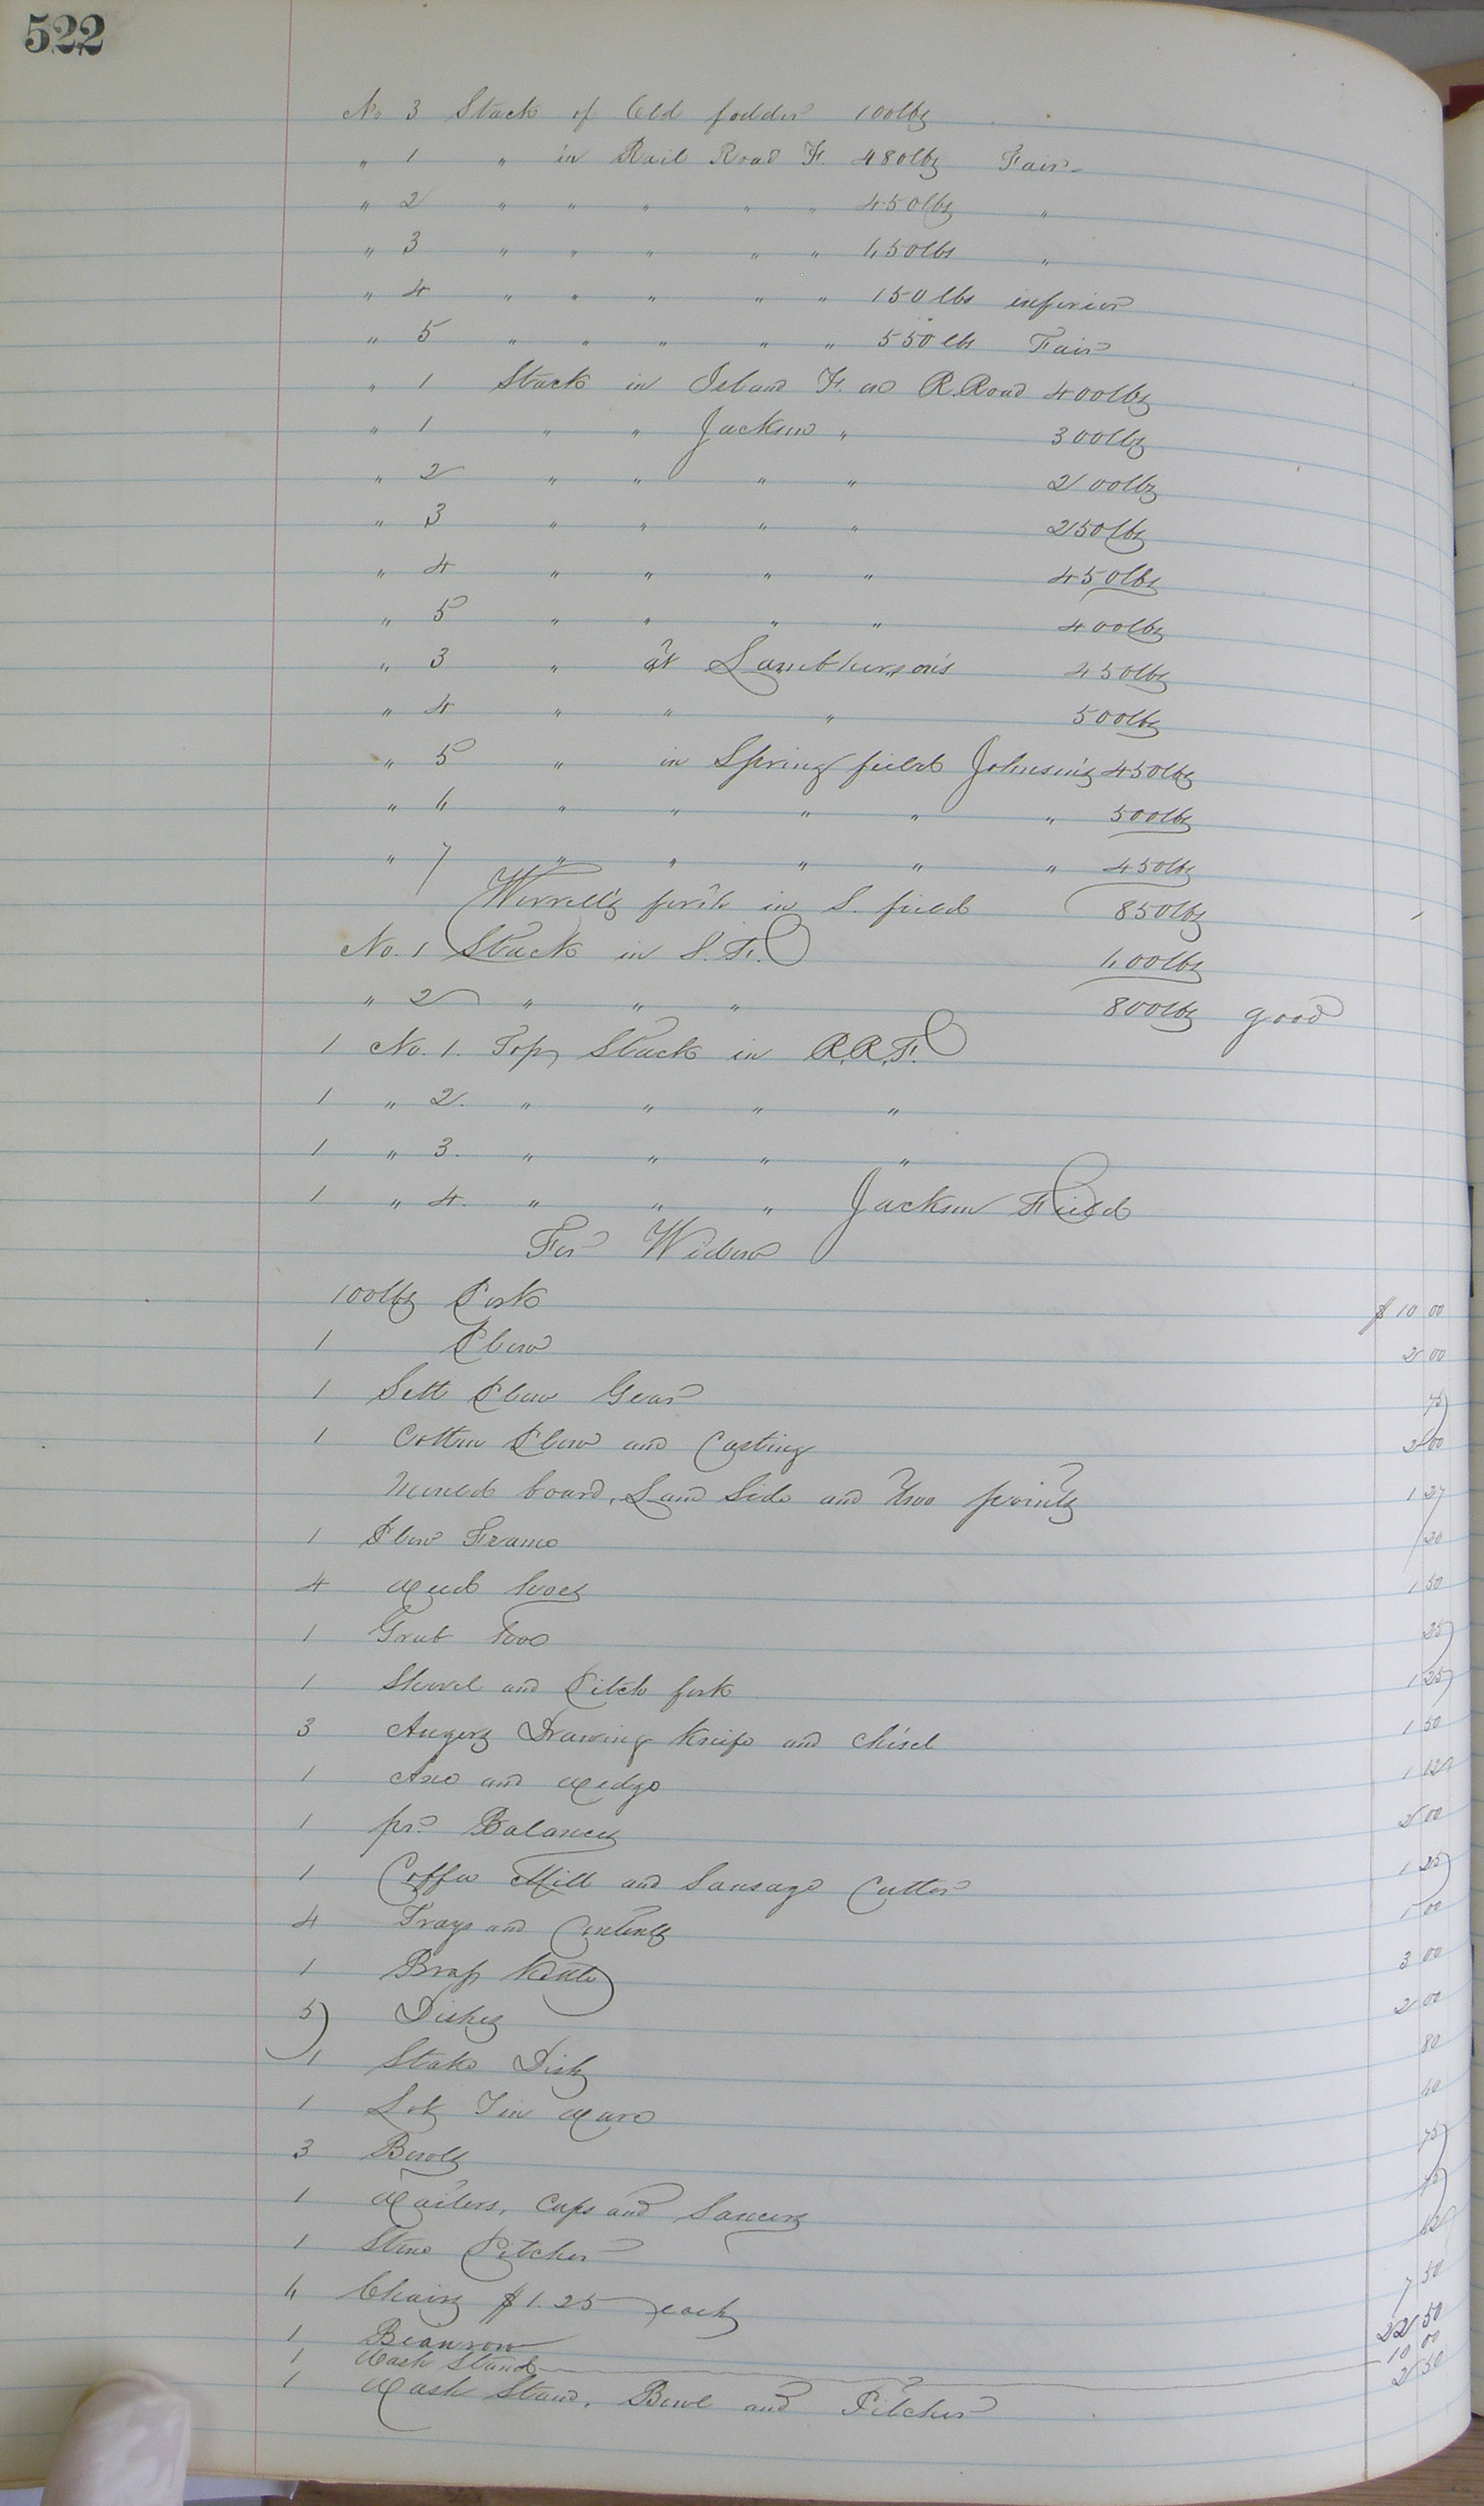 522
No 3 Stack of Old fodder 100lbs
" 1 " in Rail Road F. 480lbs Fair
" 2 " " " " " 450lbs "
" 3 " " " " " 650lbs "
" 4 " " " " " 150lbs inferior
" 5 " " " " " 550lbs Fair
" 1 Stack in Island F. as R.Road 400lbs
" 1 " " Jackson " 300lbs
" 2 " " " " 200lbs
" 3 " " " " 250lbs
" 4 " " " " 450lbs
" 5 " " " " 400lbs
" 3 " at Lambkerson's 450lbs
" 4 " " " 500lbs
" 5 " in Spring field Johnson's 450lbs
" 6 " " " " " 500lbs
" 7 " " " " " 450lbs
Worrell's fifth in S. field 850lbs
No. 1 Stack in S. F. 600lbs
" 2 " " " 800lbs good
1 No. 1. Top Stack in R.R.F.
1 " 2. " " " "
1 " 3. " " " "
1 " 4. " " " Jackson Field
For Widow
100lbs Pork $10 00
1 Plow 2 00
1 Sett Plow Gear 75
1 Cotton Plow and Casting 2 00
Mould board, Land Side and two points 1 27
1 Plow Frame 20
4 Weed hoes 1 50
1 Grub hoe 25
1 Shovel and Pitch fork 1 25
3 Augers Drawing Knife and Chisel 1 50
1 Axe and Wedge 1 12
1 pr. Balances 2 00
1 Coffee Mill and Sausage Cutter 1 25
4 Trays and Contents 1 00
1 Brass Kettle 3 00
5 Dishes 2 00
1 Stake Dish 80
1 Lot Tin Ware 60
3 Bowls 75
1 Waiters, Cups and Saucers 75
1 Stone Pitcher
6 Chairs $1.25 each 7 50
1 Beaurow 22 50
1 Wash Stand 10 00
1 Wash Stand, Bowl and Pitcher 2 50